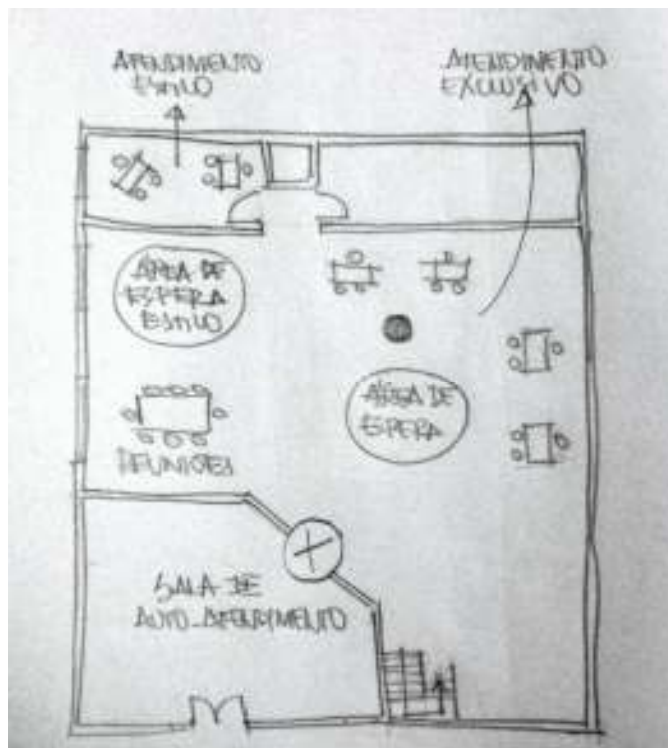 ATENDIMENTO
ESTILO
ATENDIMENTO
EXCLUSIVO
ÁREA DE
ESPERA
ESTILO
ÁREA DE
ESPERA
REUNIÕES
SALA DE
AUTO-ATENDIMENTO